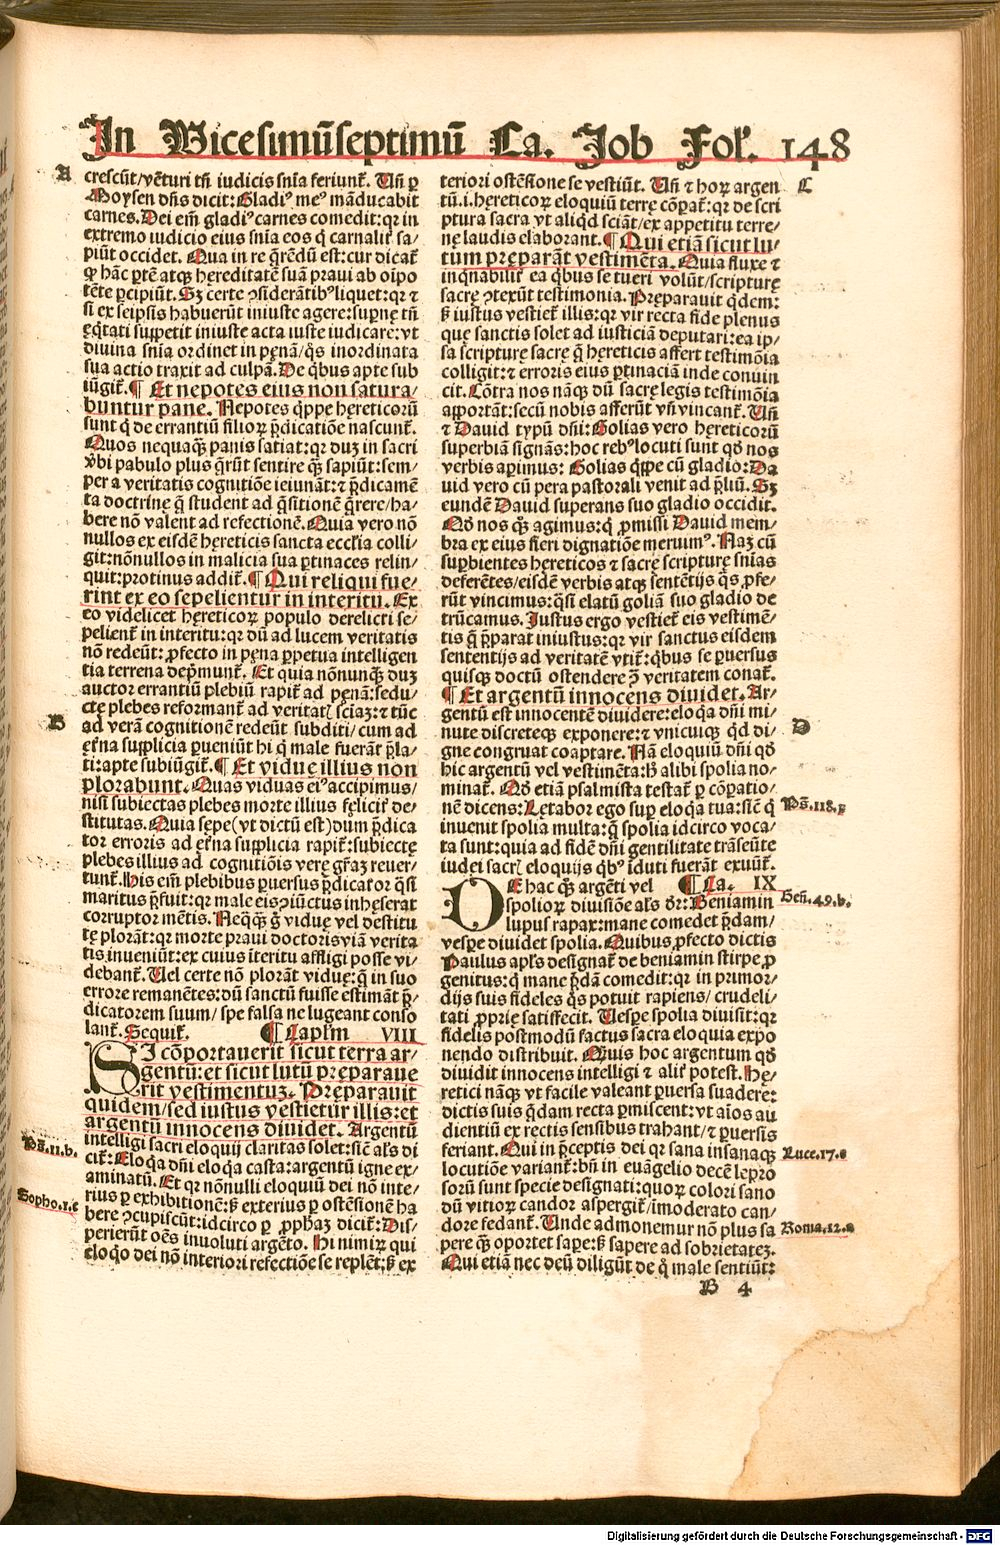 In Vicesimūseptimū Ca. Job Fol. 148
A
crescūt/vēturi tñ iudicis snīa feriunt̄. Vñ ꝑ
Moysen dñs dicit: Gladiꝰ meꝰ māducabit
carnes. Dei em̄ gladiꝰ carnes comedit: qꝛ in
extremo iudicio eius snīa eos q̇ carnalit̄ sa/
piūt occidet. Qua in re q̄rēdū est: cur dicat̄
ꝙ hāc ꝑtē atqꝫ hęreditatē suā praui ab oīpo
tēte ꝑcipiūt. Sꝫ certe ꝯsiderātibꝰ liquet: qꝛ ⁊
si ex seipsis habuerūt iniuste agere: supne tñ
eq̇tati suppetit iniuste acta iuste iudicare: vt
diuina snīa ordinet in pęnā/q̇s inordinata
sua actio traxit ad culpā. De q̇bus apte sub
iūgit̄. ¶ Et nepotes eius non satura/
buntur pane. Nepotes q̇ppe hęreticorū
sunt q̇ de errantiū filioꝝ p̄dicatiōe nascunt̄.
Quos nequaqꝫ panis satiat: qꝛ duꝫ in sacri
v̄bi pabulo plus q̄rūt sentire qꝫ sapiūt: sem/
per a veritatis cognitiōe ieiunāt: ⁊ p̄dicamē
ta doctrinę q̇ student ad q̄sitionē q̄rere/ha/
bere nō valent ad refectionē. Quia vero nō
nullos ex eisdē hęreticis sancta ecclīa colli/
git: nōnullos in malicia sua ꝑtinaces relin/
quit: protinus addit̄. ¶ Qui reliqui fue/
rint ex eo sepelientur in interitu. Ex
eo videlicet hęreticoꝝ populo derelicti se/
pelient̄ in interitu: qꝛ dū ad lucem veritatis
nō redeūt: ꝓfecto in pęna ꝑpetua intelligen
tia terrena dep̄munt̄. Et quia nōnunqꝫ duꝫ
auctor errantiū plebiū rapit̄ ad pęnā: sedu/
ctę plebes reformant̄ ad veritatꝭ sciaꝫ: ⁊ tūc
B
ad verā cognitionē redeūt subditi/cum ad
ęt̄na supplicia ꝑueniūt hi q̇ male fuerāt p̄la/
ti: apte subiūgit̄. ¶ Et viduę illius non
plorabunt. Quas viduas eiꝰ accipimus/
nisi subiectas plebes morte illius fęlicit̄ de/
stitutas. Quia sępe (vt dictū est) dum p̄dica
tor erroris ad ęt̄na supplicia rapit̄: subiectę
plebes illius ad cognitiōis verę gr̄aꝫ reuer/
tunt̄. His em̄ plebibus ꝑuersus p̄dicator q̇si
maritus p̄fuit: qꝛ male eis ꝯiūctus inhęserat
corruptor mētis. Neq̇qꝫ g̊ viduę vel destitu
tę plorāt: qꝛ morte praui doctoris viā verita
tis inueniūt: ex cuius iteritu affligi posse vi/
debant̄. Vel certe nō plorāt viduę: q̇ in suo
errore remanētes: dū sanctū fuisse estimāt p̄/
dicatorem suum/spe falsa ne lugeant conso
lant̄. Sequit̄. ¶ Caplm VIII
SI cōportauerit sicut terra ar/
gentū: et sicut lutū pręparaue
rit vestimentuꝫ. Pręparauit
quidem/sed iustus vestietur illis: et
argentū innocens diuidet. Argentū
Ps̄. 11. b.
intelligi sacri eloquij claritas solet: sicē als di
cit̄: Eloq̇a dñi eloq̇a casta: argentū igne ex/
aminatū. Et qꝛ nōnulli eloquiū dei nō inte/
Sopho. 1. c
rius ꝑ exhibitionē: ß exterius ꝑ ostēsionē ha
bere ꝯcupiscūt: idcirco ꝑ ꝓphaꝫ dicit̄: Dis/
perierūt oēs inuoluti argēto. Hi nimiꝝ qui
eloq̇o dei nō interiori refectiōe se replēt: ß ex
teriori ostēsione se vestiūt. Vñ ⁊ hoꝝ argen
C
tū. i. hęreticoꝝ eloquiū terrę cōꝑat̄: qꝛ de scri
ptura sacra vt aliq̇d sciāt/ex appetitu terre/
nę laudis elaborant. ¶ Qui etiā sicut lu/
tum pręparāt vestimēta. Quia fluxe ⁊
inq̇nabilit̄ ea q̇bus se tueri volūt/scripturę
sacrę ꝯtexūt testimonia. Pręparauit q̇dem:
ß iustus vestiet̄ illis: qꝛ vir recta fide plenus
quę sanctis solet ad iusticiā deputari: ea ip/
sa scripturę sacrę q̇ hęreticis affert testimōia
colligit: ⁊ erroris eius ꝑtinaciā inde conuin
cit. Cōtra nos nāqꝫ dū sacrę legis testimōia
apportāt: secū nobis afferūt vñ vincant̄. Vñ
⁊ Dauid typū dñi: Golias vero hęreticorū
superbiā signās: hoc rebꝰ locuti sunt qđ nos
verbis aꝑimus: Golias q̇ppe cū gladio: Da
uid vero cū pera pastorali venit ad p̄liū. Sꝫ
eundē Dauid superans suo gladio occidit.
Qđ nos qꝫ agimus: q̇ ꝓmissi Dauid mem/
bra ex eius fieri dignatiōe meruimꝰ. Naꝫ cū
suꝑbientes hereticos ⁊ sacrę scripturę snīas
deferētes/eisdē verbis atqꝫ sentētijs q̇s ꝓfe/
rūt vincimus: q̇si elatū goliā suo gladio de
trūcamus. Justus ergo vestiet̄ eis vestimē/
tis q̇ p̄parat iniustus: qꝛ vir sanctus eisdem
sententijs ad veritatē vtit̄: q̇bus se ꝑuersus
quisqꝫ doctū ostendere ꝯ̄ veritatem conat̄.
¶ Et argentū innocens diuidet. Ar/
gentū est innocentē diuidere: eloq̇a dñi mi/
D
nute discreteqꝫ exponere: ⁊ vnicuiqꝫ q̇d di/
gne congruat coaptare. Nā eloquiū dñi qđ
hic argentū vel vestimēta: ħ alibi spolia no/
minat̄. Qđ etiā psalmista testat̄ ꝑ cōꝑatio/
Ps̄. 118. ꝝ
nē dicens: Lętabor ego suꝑ eloq̇a tua: sicē q̇
inuenit spolia multa: q̇ spolia idcirco voca/
ta sunt: quia ad fidē dñi gentilitate trāseūte
iudei sacrꝭ eloquijs q̇bꝰ īduti fuerāt exuūt̄.
¶ Ca. IX
DE hac qꝫ argēti vel
Geñ. 49. b.
spolioꝝ diuisiōe als dr̄: Beniamin
lupus rapax: mane comedet p̄dam/
vesꝑe diuidet spolia. Quibus ꝓfecto dictis
Paulus apls designat̄ de beniamin stirpe ꝓ
genitus: q̇ mane p̄dā comedit: qꝛ in primor/
dijs suis fideles q̇s potuit rapiens/crudeli/
tati ꝓprię satisfecit. Vespe spolia diuisit: qꝛ
fidelis postmodū factus sacra eloquia expo
nendo distribuit. Quis hoc argentum qđ
diuidit innocens intelligi ⁊ alit̄ potest. Hę/
retici nāqꝫ vt facile valeant ꝑuersa suadere:
dictis suis q̇dam recta ꝑmiscent: vt aīos au
dientiū ex rectis sensibus trahant/⁊ ꝑuersis
feriant. Qui in p̄ceptis dei qꝛ sana insanaqꝫ
Luce. 17. c
locutiōe variant̄: bñ in euāgelio decē lepro
sorū sunt specie designati: quoꝝ colori sano
dū vitioꝝ candor aspergit̄/imoderato can/
dore fedant̄. Vnde admonemur nō plus sa
Roma. 12. a
pere qꝫ oportet saꝑe: ß sapere ad sobrietateꝫ.
Qui etiā nec deū diligūt de q̇ male sentiūt:
B 4
Digitalisierung gefördert durch die Deutsche Forschungsgemeinschaft - DFG